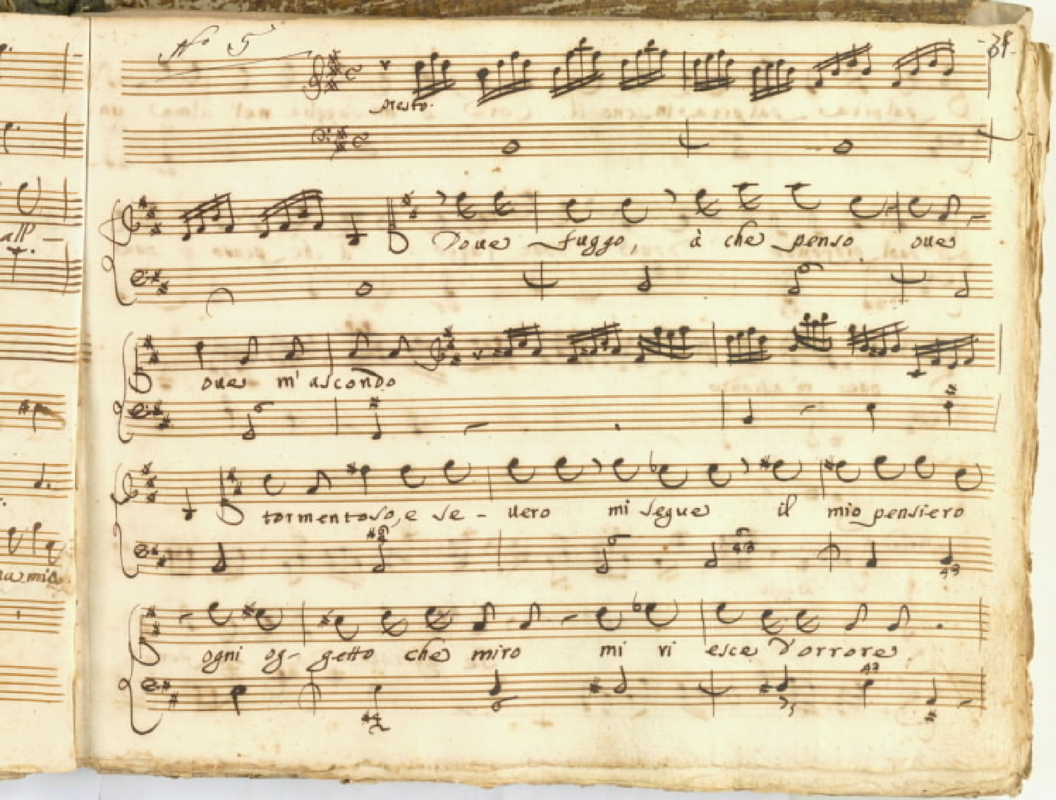 No 5
presto.
Doue fuggo, à che penso oue
oue m'ascondo
tormentoso, e se - uero mi segue il mio pensiero
ogni og- getto che miro mi vi esce d'orrore
all' -